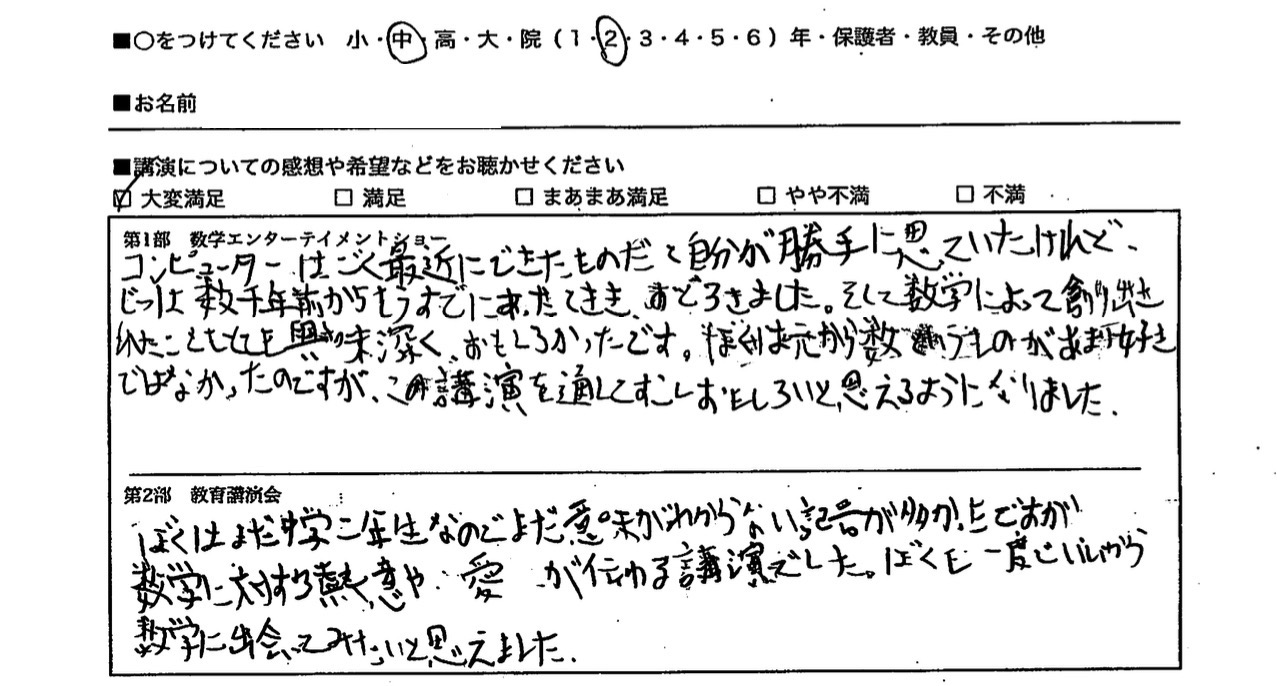 ■○をつけてください 小・中・高・大・院(1・2・3・4・5・6)年・保護者・教員・その他
■お名前
■講演についての感想や希望などをお聴かせください
☑ 大変満足 □ 満足 □ まあまあ満足 □ やや不満 □ 不満
第1部 数学エンターテイメントショー
コンピューターはごく最近にできたものだと自分が勝手に思っていたけれど、
じつは数千年前からもうすでにあったときき、おどろきました。そして数学によって創り出さ
れたこともとても興味深く、おもしろかったです。ぼくは元から数学というものがあまり好き
ではなかったのですが、この講演を通してすこしおもしろいと思えるようになりました。
第2部 教育講演会
ぼくはまだ中学二年生なのでまだ意味がわからない記号が多かったですが
数学に対する熱意や 愛 が伝わる講演でした。ぼくも一度でいいから
数学に出会ってみたいと思えました。